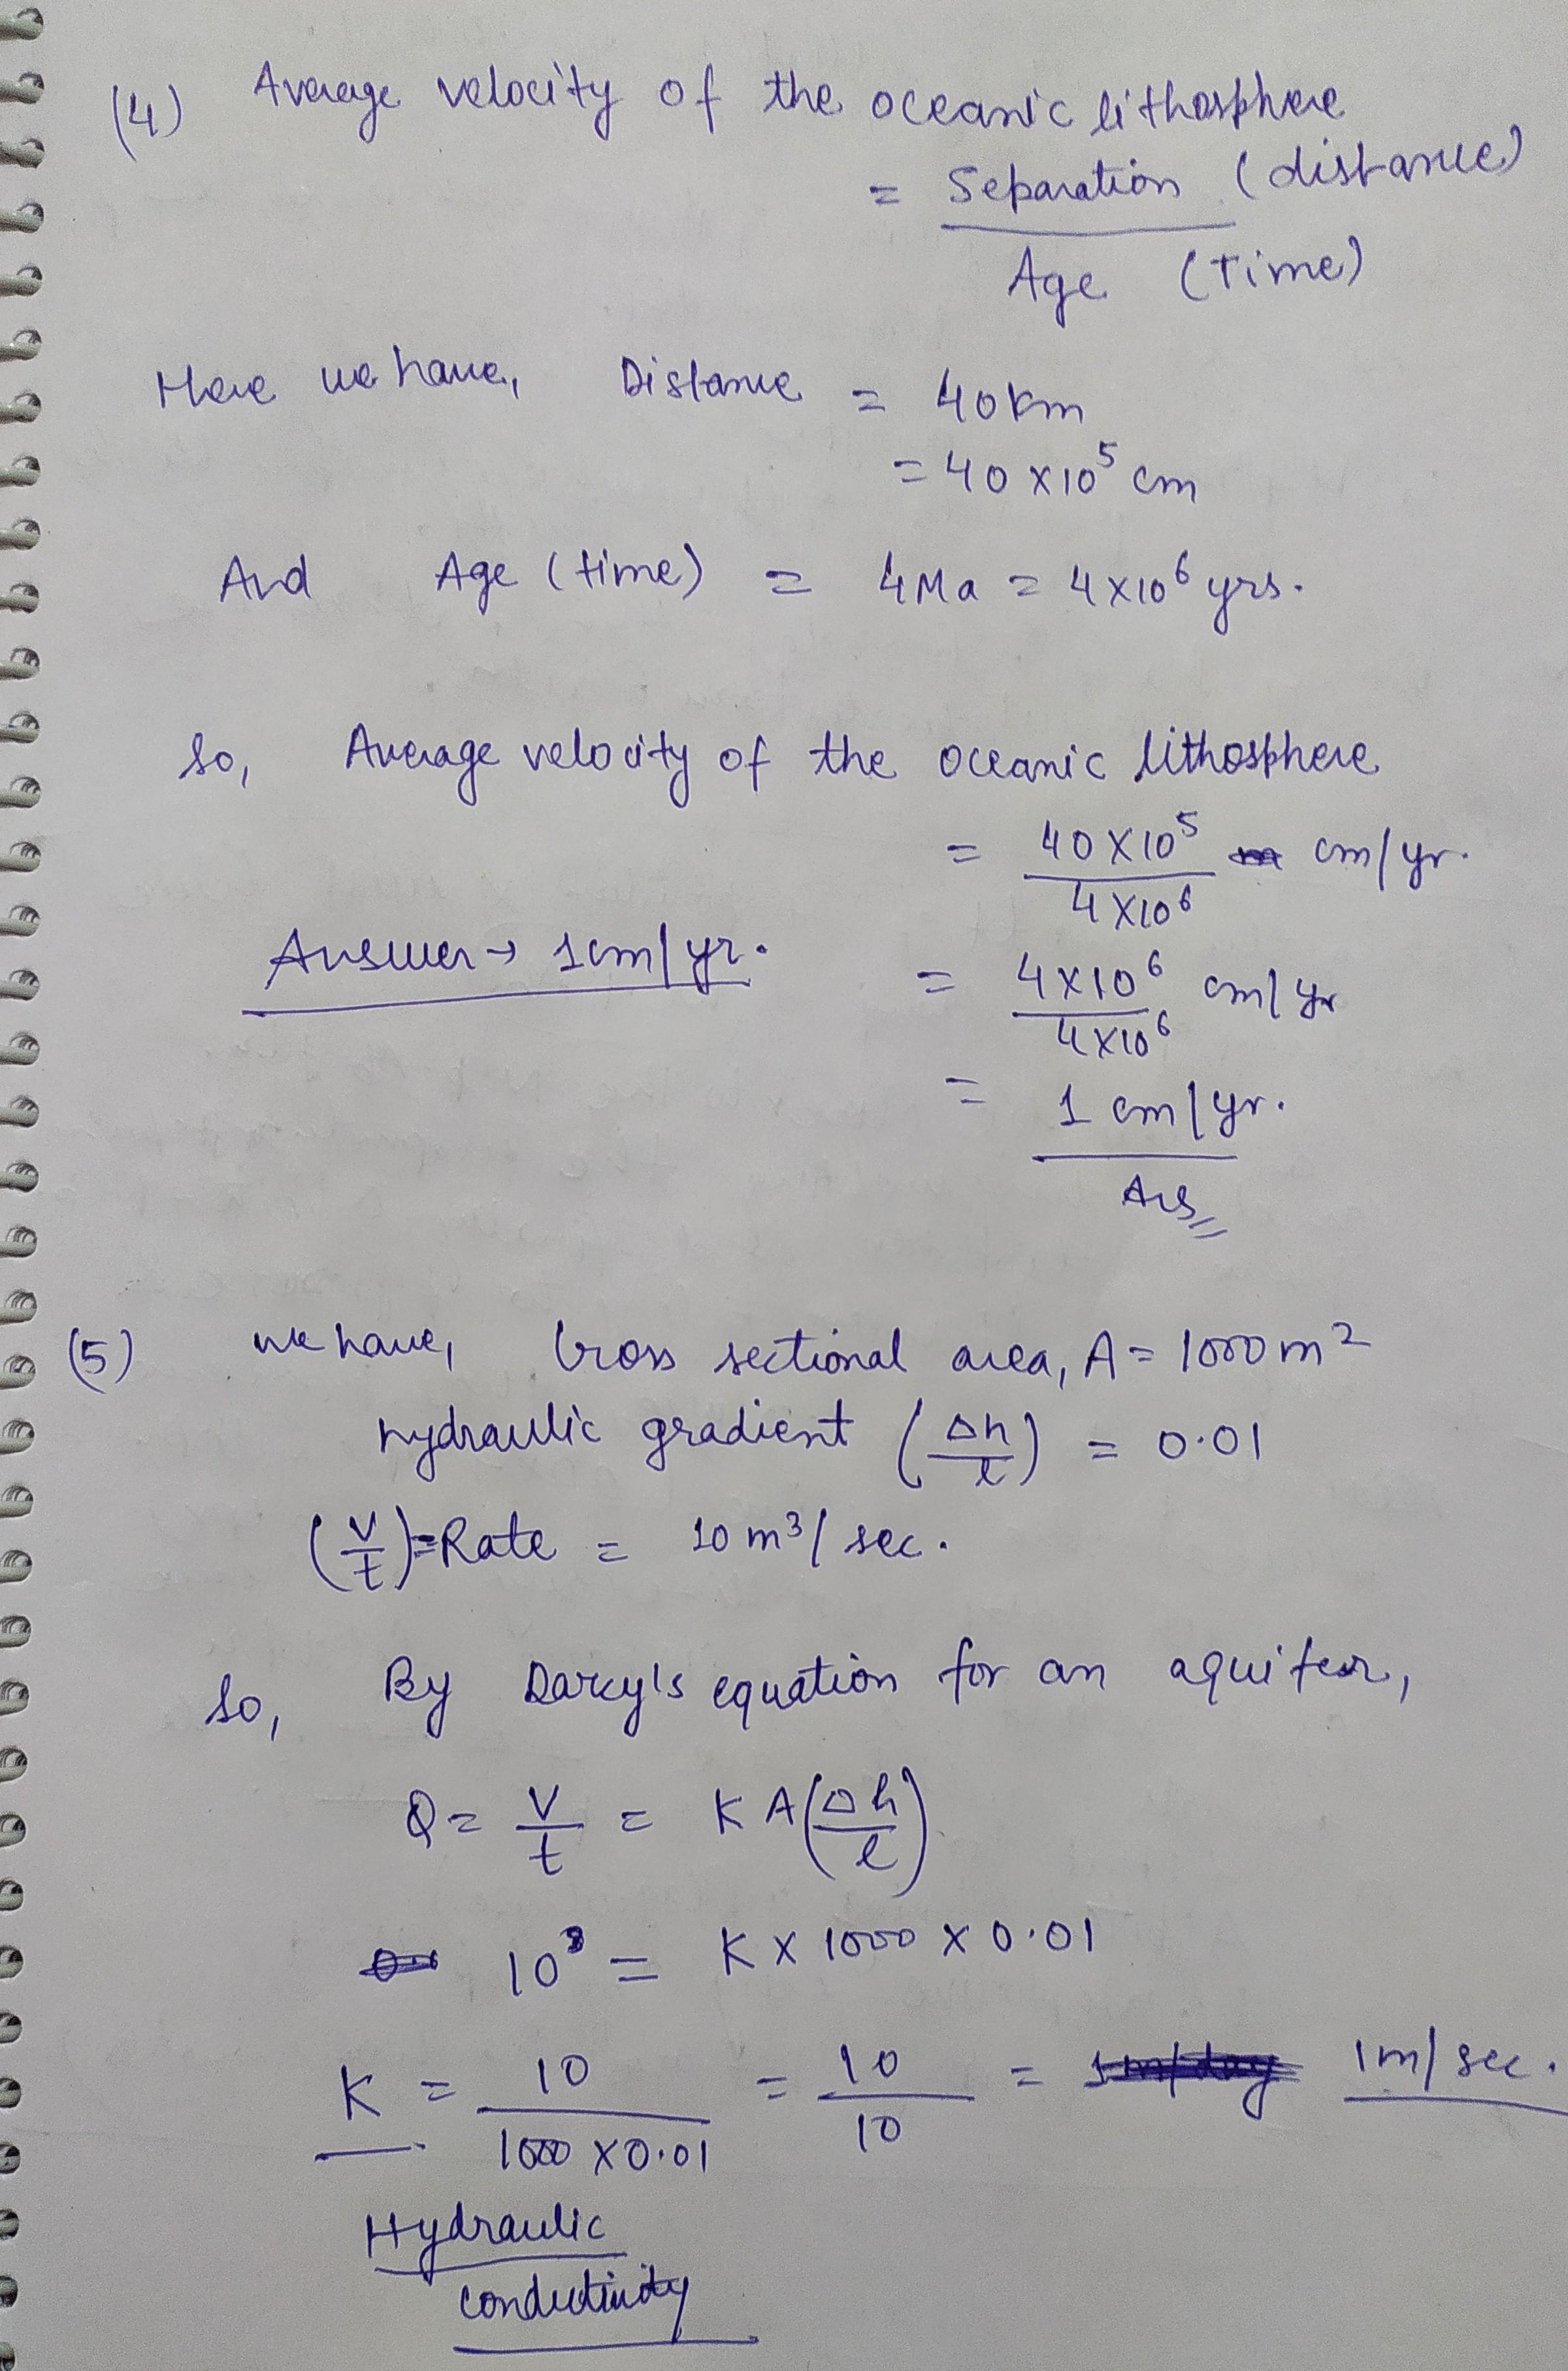 (4) Average velocity of the oceanic lithosphere
= Separation (distance)
Age (Time)
Here we have, Distance = 40 km
= 40 × 10⁵ cm
And Age (time) = 4 Ma = 4×10⁶ yrs.
So, Average velocity of the oceanic lithosphere
= 40×10⁵ cm/yr.
4×10⁶
Answer → 1cm/yr.
= 4×10⁶ cm/yr
4×10⁶
= 1 cm/yr.
Ans
(5) we have, Cross sectional area, A = 1000 m²
hydraulic gradient (Δh/l) = 0.01
(V/t) = Rate = 10 m³/sec.
So, By Darcy's equation for an aquifer,
Q = V/t = KA(Δh/l)
10 = K × 1000 × 0.01
K = 10 / 1000 × 0.01 = 10/10 = 1m/sec.
Hydraulic
conductivity